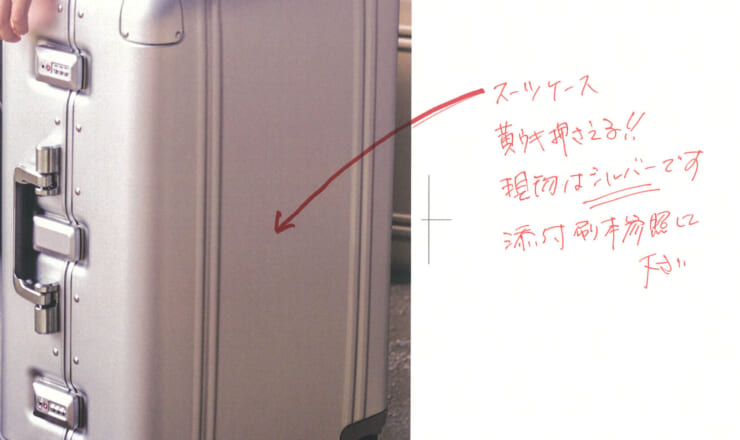 スーツケース
黄ウキ押さえる!!
現物はシルバーです
添付刷本参照して
下さい